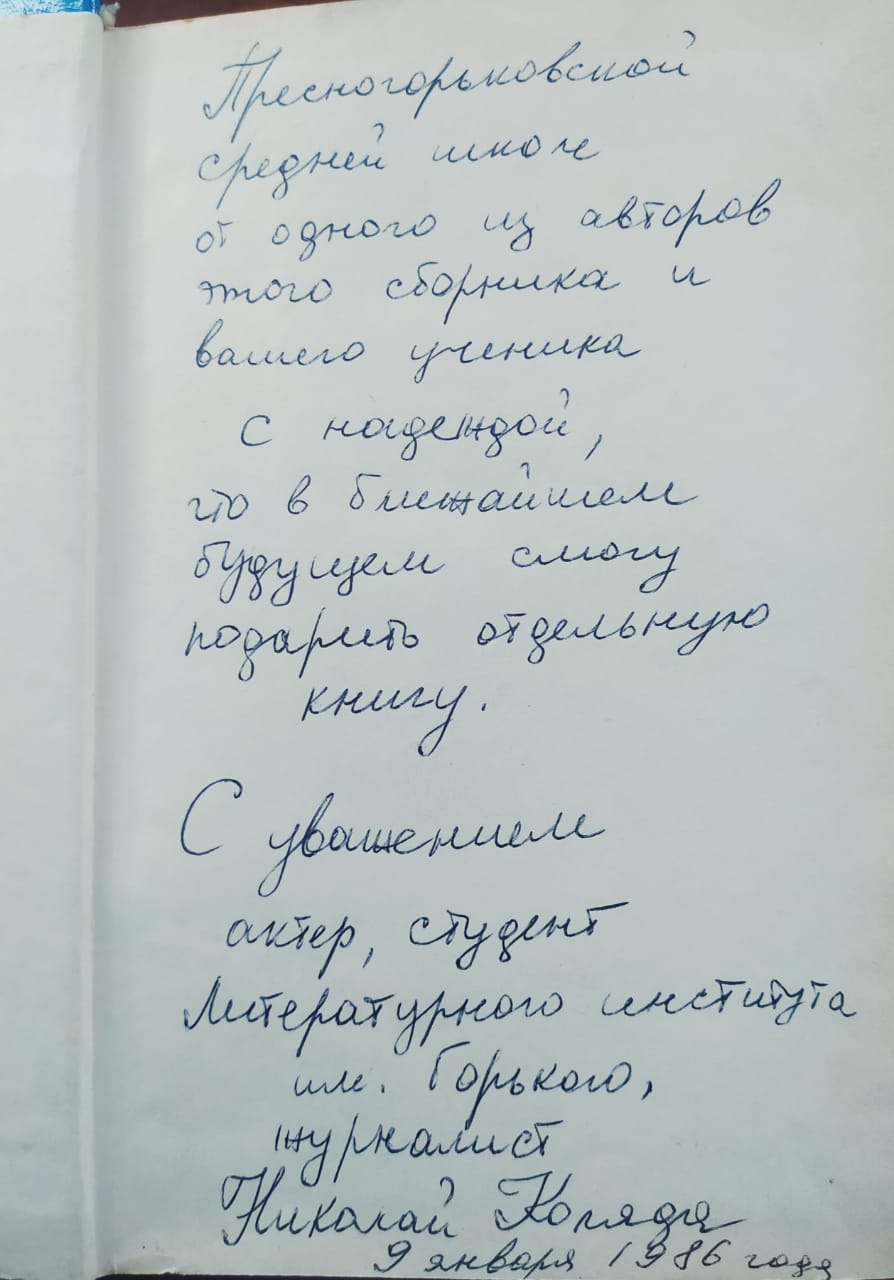 Пресногорьковской
средней школе
от одного из авторов
этого сборника и
вашего ученика
С надеждой,
что в ближайшем
будущем смогу
подарить отдельную
книгу.
С уважением
актер, студент
Литературного института
им. Горького,
журналист
Николай Коляда
9 января 1986 года